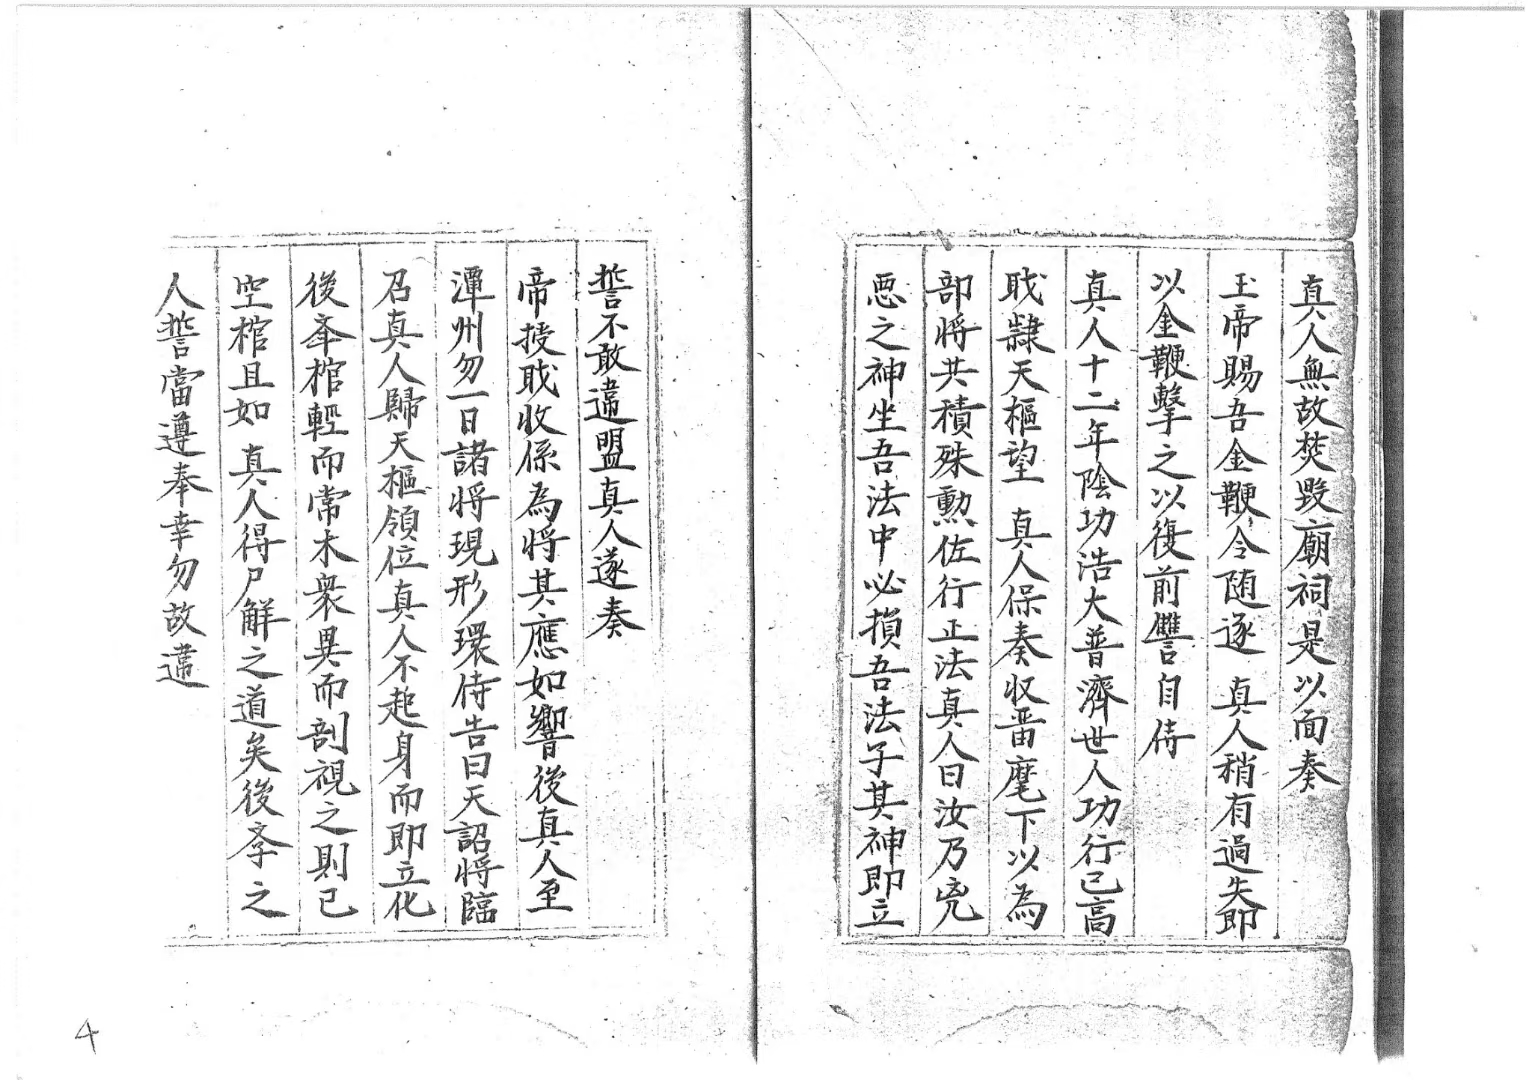 真人無故焚毀廟祠是以面奏
玉帝賜吾金鞭令随逐 真人稍有過失即
以金鞭擊之以復前讐自侍
真人十二年陰功浩大普濟世人功行已高
戝隸天樞望 真人保奏収畨麾下以為
部将共積殊勲佐行正法真人曰汝乃兇
悪之神坐吾法中必損吾法子其神即立
誓不敢違盟真人遂奏
帝授戝收係為将其應如響後真人至
潭州勿一日諸将現形環侍告曰天詔将臨
召真人歸天樞領位真人不起身而即立化
後夆棺輕而常木衆異而剖視之則已
空棺且如 真人得尸解之道矣後斈之
人誓當遵奉幸勿故違
4